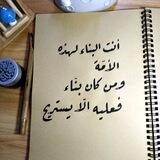 أنت البناء لهذه
الأمّة
ومن كان بنّاء
فعليه ألّا يستريح